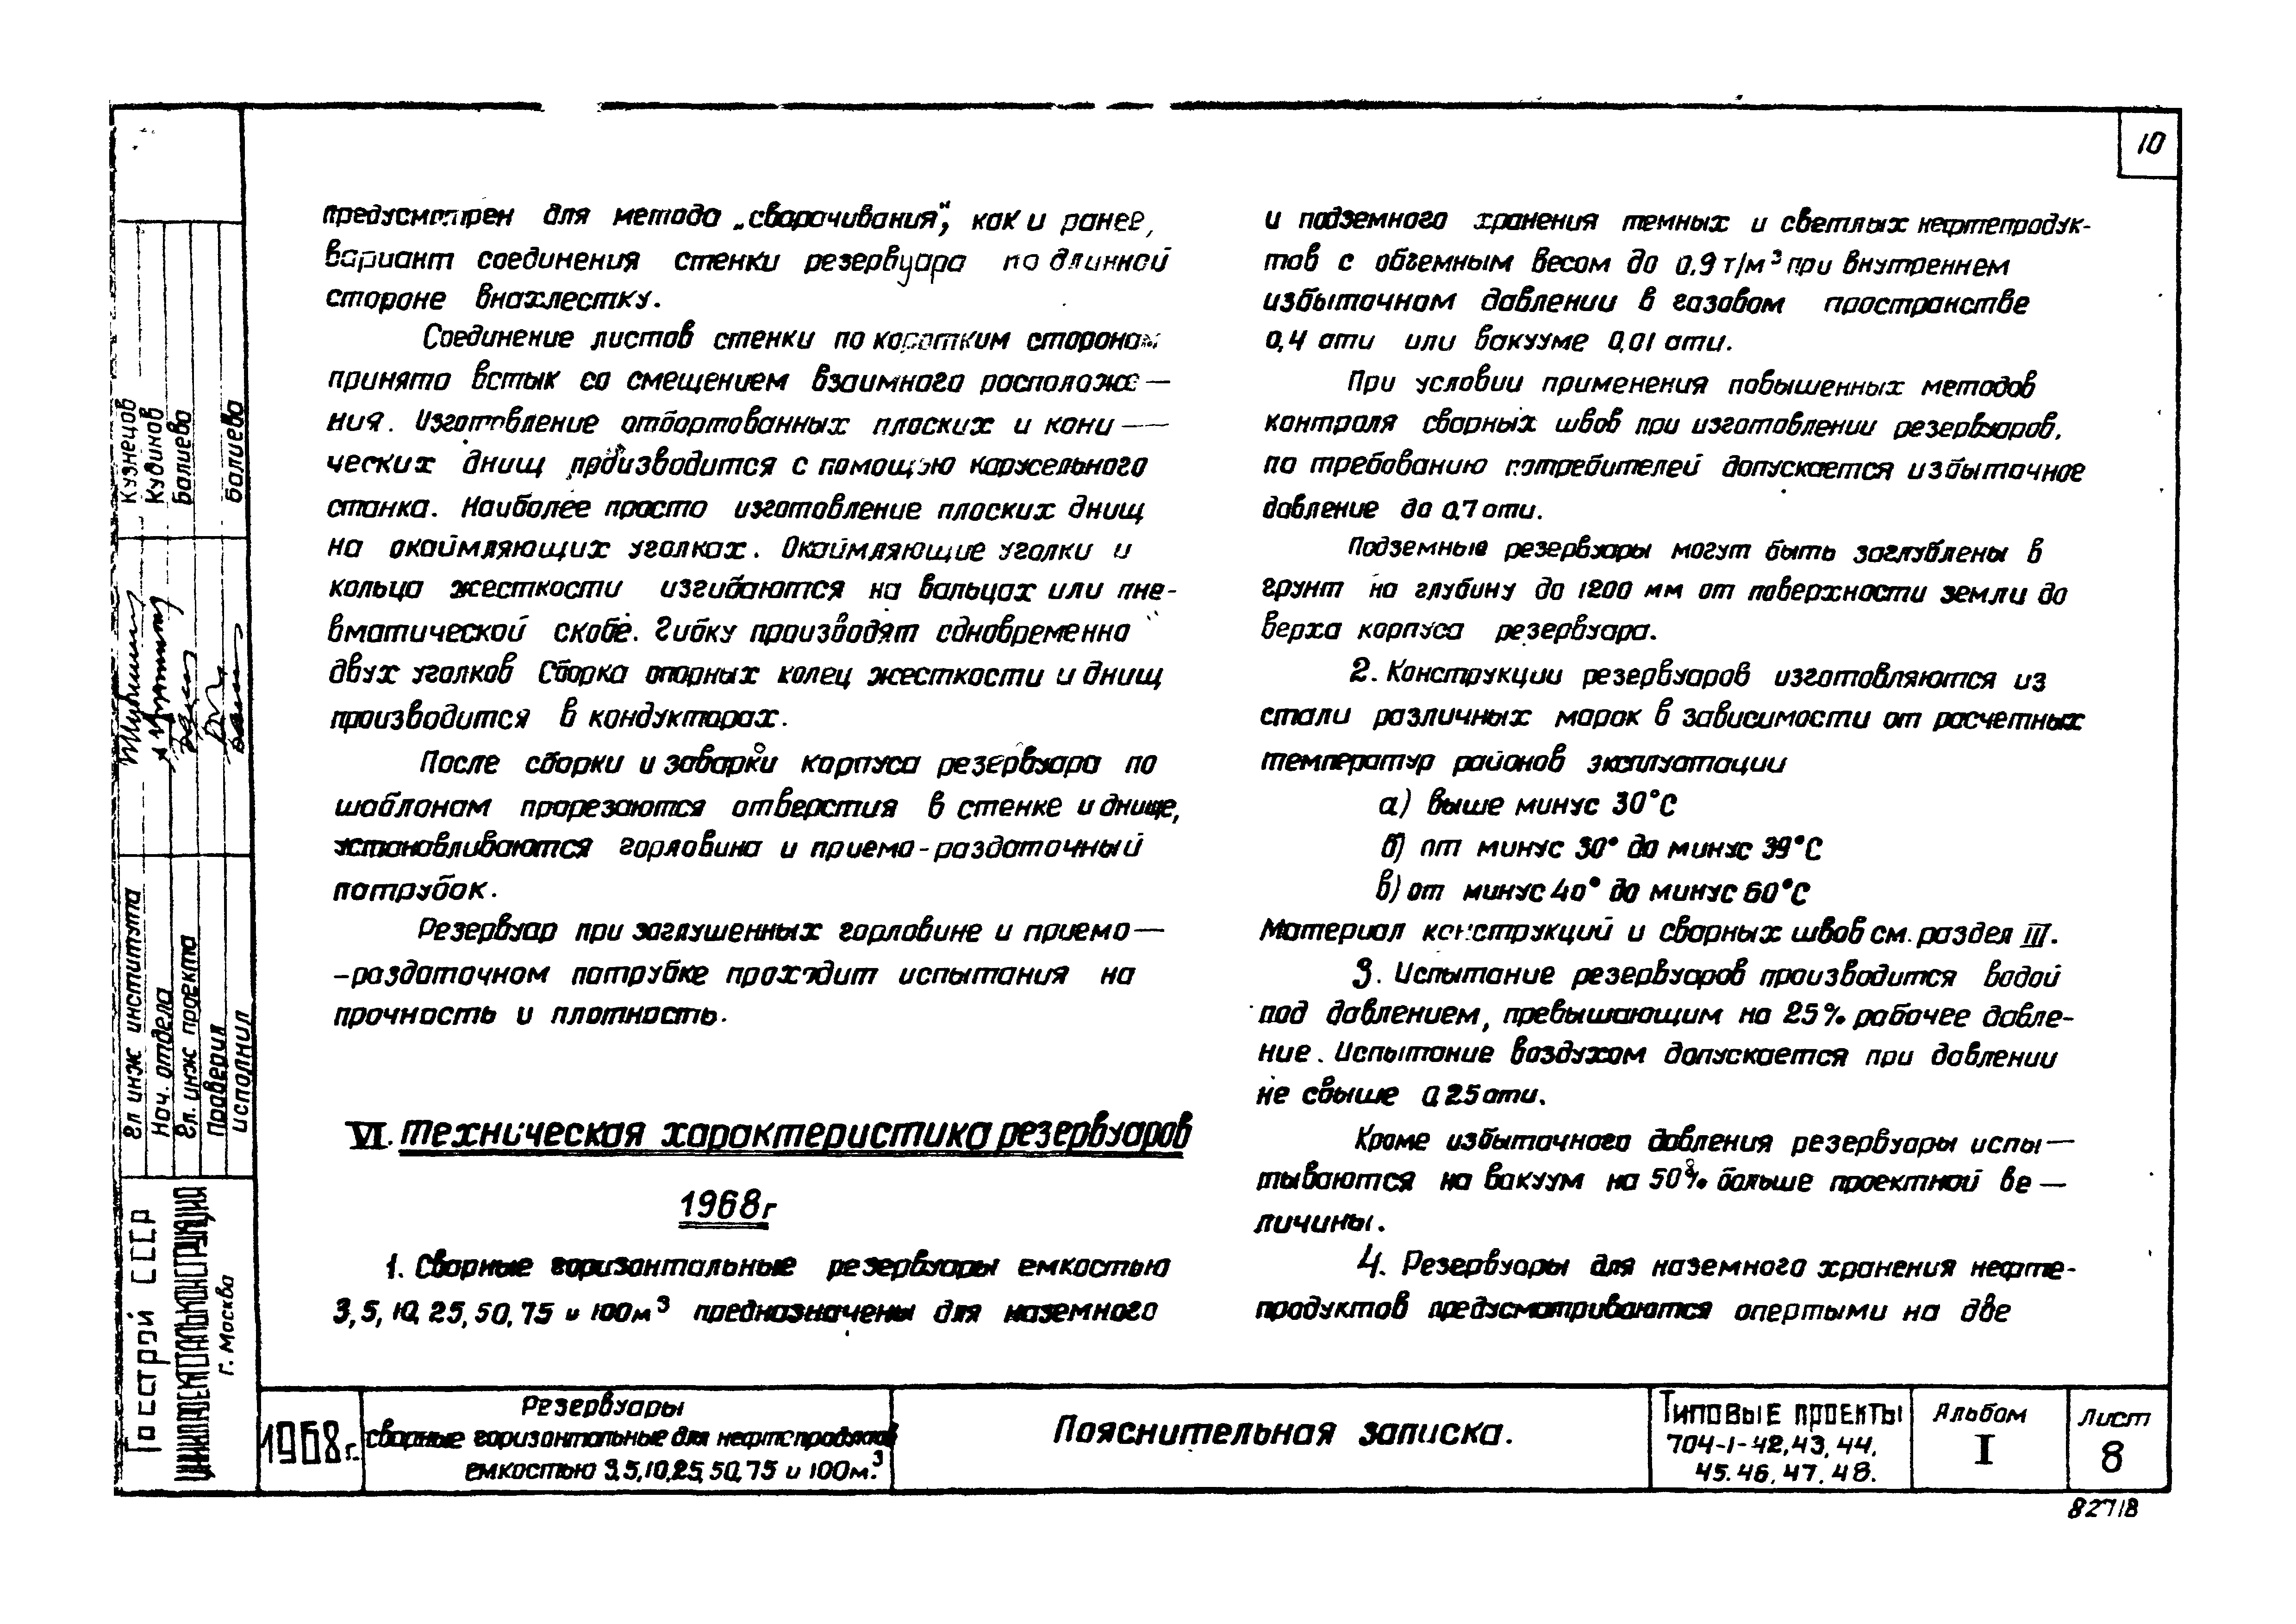 10
предусмотрен для метода „сворачивания", как и ранее,
вариант соединения стенки резервуара по длинной
стороне внахлестку.
Соединение листов стенки по коротким сторонам
принято встык со смещением взаимного расположе—
ния. Изготовление отбортованных плоских и кони—
ческих днищ производится с помощью карусельного
станка. Наиболее просто изготовление плоских днищ
на окаймляющих уголках. Окаймляющие уголки и
кольца жесткости изгибаются на вальцах или пне-
вматической скобе. Гибку производят одновременно
двух уголков Сборка опорных колец жесткости и днищ
производится в кондукторах.
После сборки и заварки корпуса резервуара по
шаблонам прорезаются отверстия в стенке и днище,
устанавливаются горловина и приемо-раздаточный
патрубок.
Резервуар при заглушенных горловине и приемо—
-раздаточном патрубке проходит испытания на
прочность и плотность.
VI. Техническая характеристика резервуаров
1968г
1. Сварные горизонтальные резервуары емкостью
3, 5, 10, 25, 50, 75 и 100м³ предназначены для наземного
и подземного хранения темных и светлых нефтепродук-
тов с объемным весом до 0.9 т/м³ при внутреннем
избыточном давлении в газовом пространстве
0,4 ати или вакууме 0,01 ати.
При условии применения повышенных методов
контроля сварных швов при изготовлении резервуаров,
по требованию потребителей допускается избыточное
давление до 0.7 ати.
Подземные резервуары могут быть заглублены в
грунт на глубину до 1200 мм от поверхности земли до
верха корпуса резервуара.
2. Конструкции резервуаров изготовляются из
стали различных марок в зависимости от расчетных
температур районов эксплуатации
а) выше минус 30°С
б) от минус 30° до минус 39°С
в) от минус 40° до минус 60°С
Материал конструкций и сварных швов см. раздел III.
3. Испытание резервуаров производится водой
под давлением, превышающим на 25% рабочее давле-
ние. Испытание воздухом допускается при давлении
не свыше 0.25 ати.
Кроме избыточного давления резервуары испы—
тываются на вакуум на 50% больше проектной ве—
личины.
4. Резервуары для наземного хранения нефте-
продуктов предусматриваются опертыми на две
Гл инж института Кузнецов
Нач. отдела Кудинов
Гл. инж проекта Балиева
Проверил
исполнил балиева
Госстрой СССР
ЦНИИПРОЕКТСТАЛЬКОНСТРУКЦИЯ
г. Москва
1968г.
Резервуары
сварные горизонтальные для нефтепродуктов
емкостью 3,5,10,25,50,75 и 100м.³
Пояснительная записка.
Типовые проекты
704-1-42,43,44,
45.46.47.48.
Альбом
I
Лист
8
82718